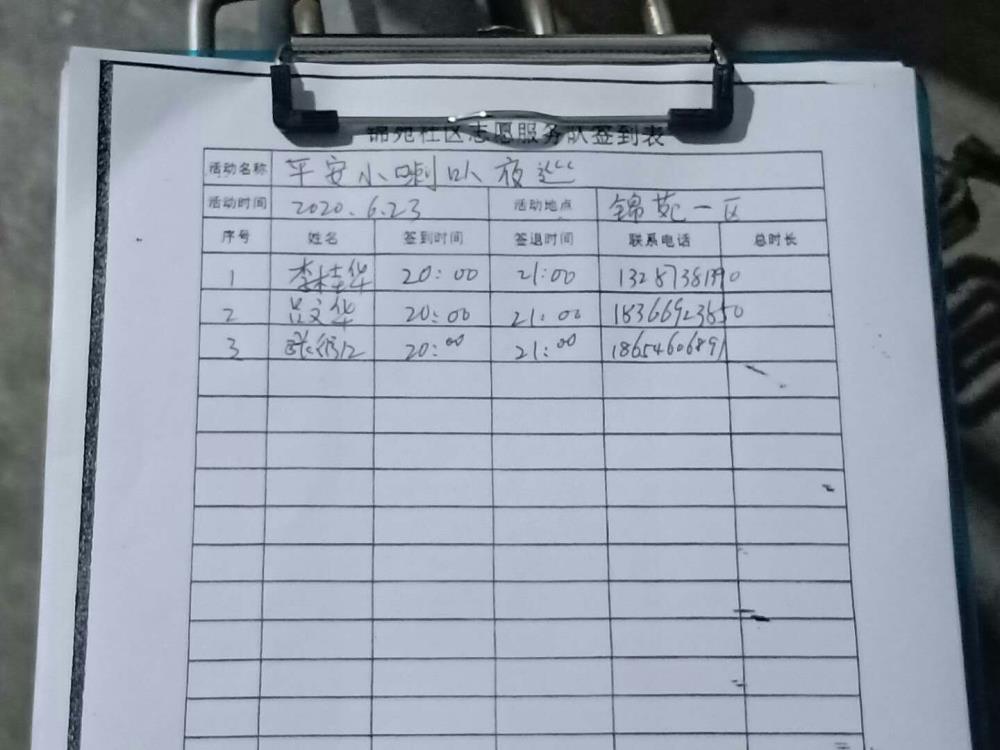 锦苑社区志愿服务队签到表
活动名称 平安小喇叭夜巡
活动时间 2020.6.23 活动地点 锦苑一区
序号 姓名 签到时间 签退时间 联系电话 总时长
1 李桂华 20:00 21:00
2 吕文华 20:00 21:00 18366923650
3 20:00 21:00 18654606891